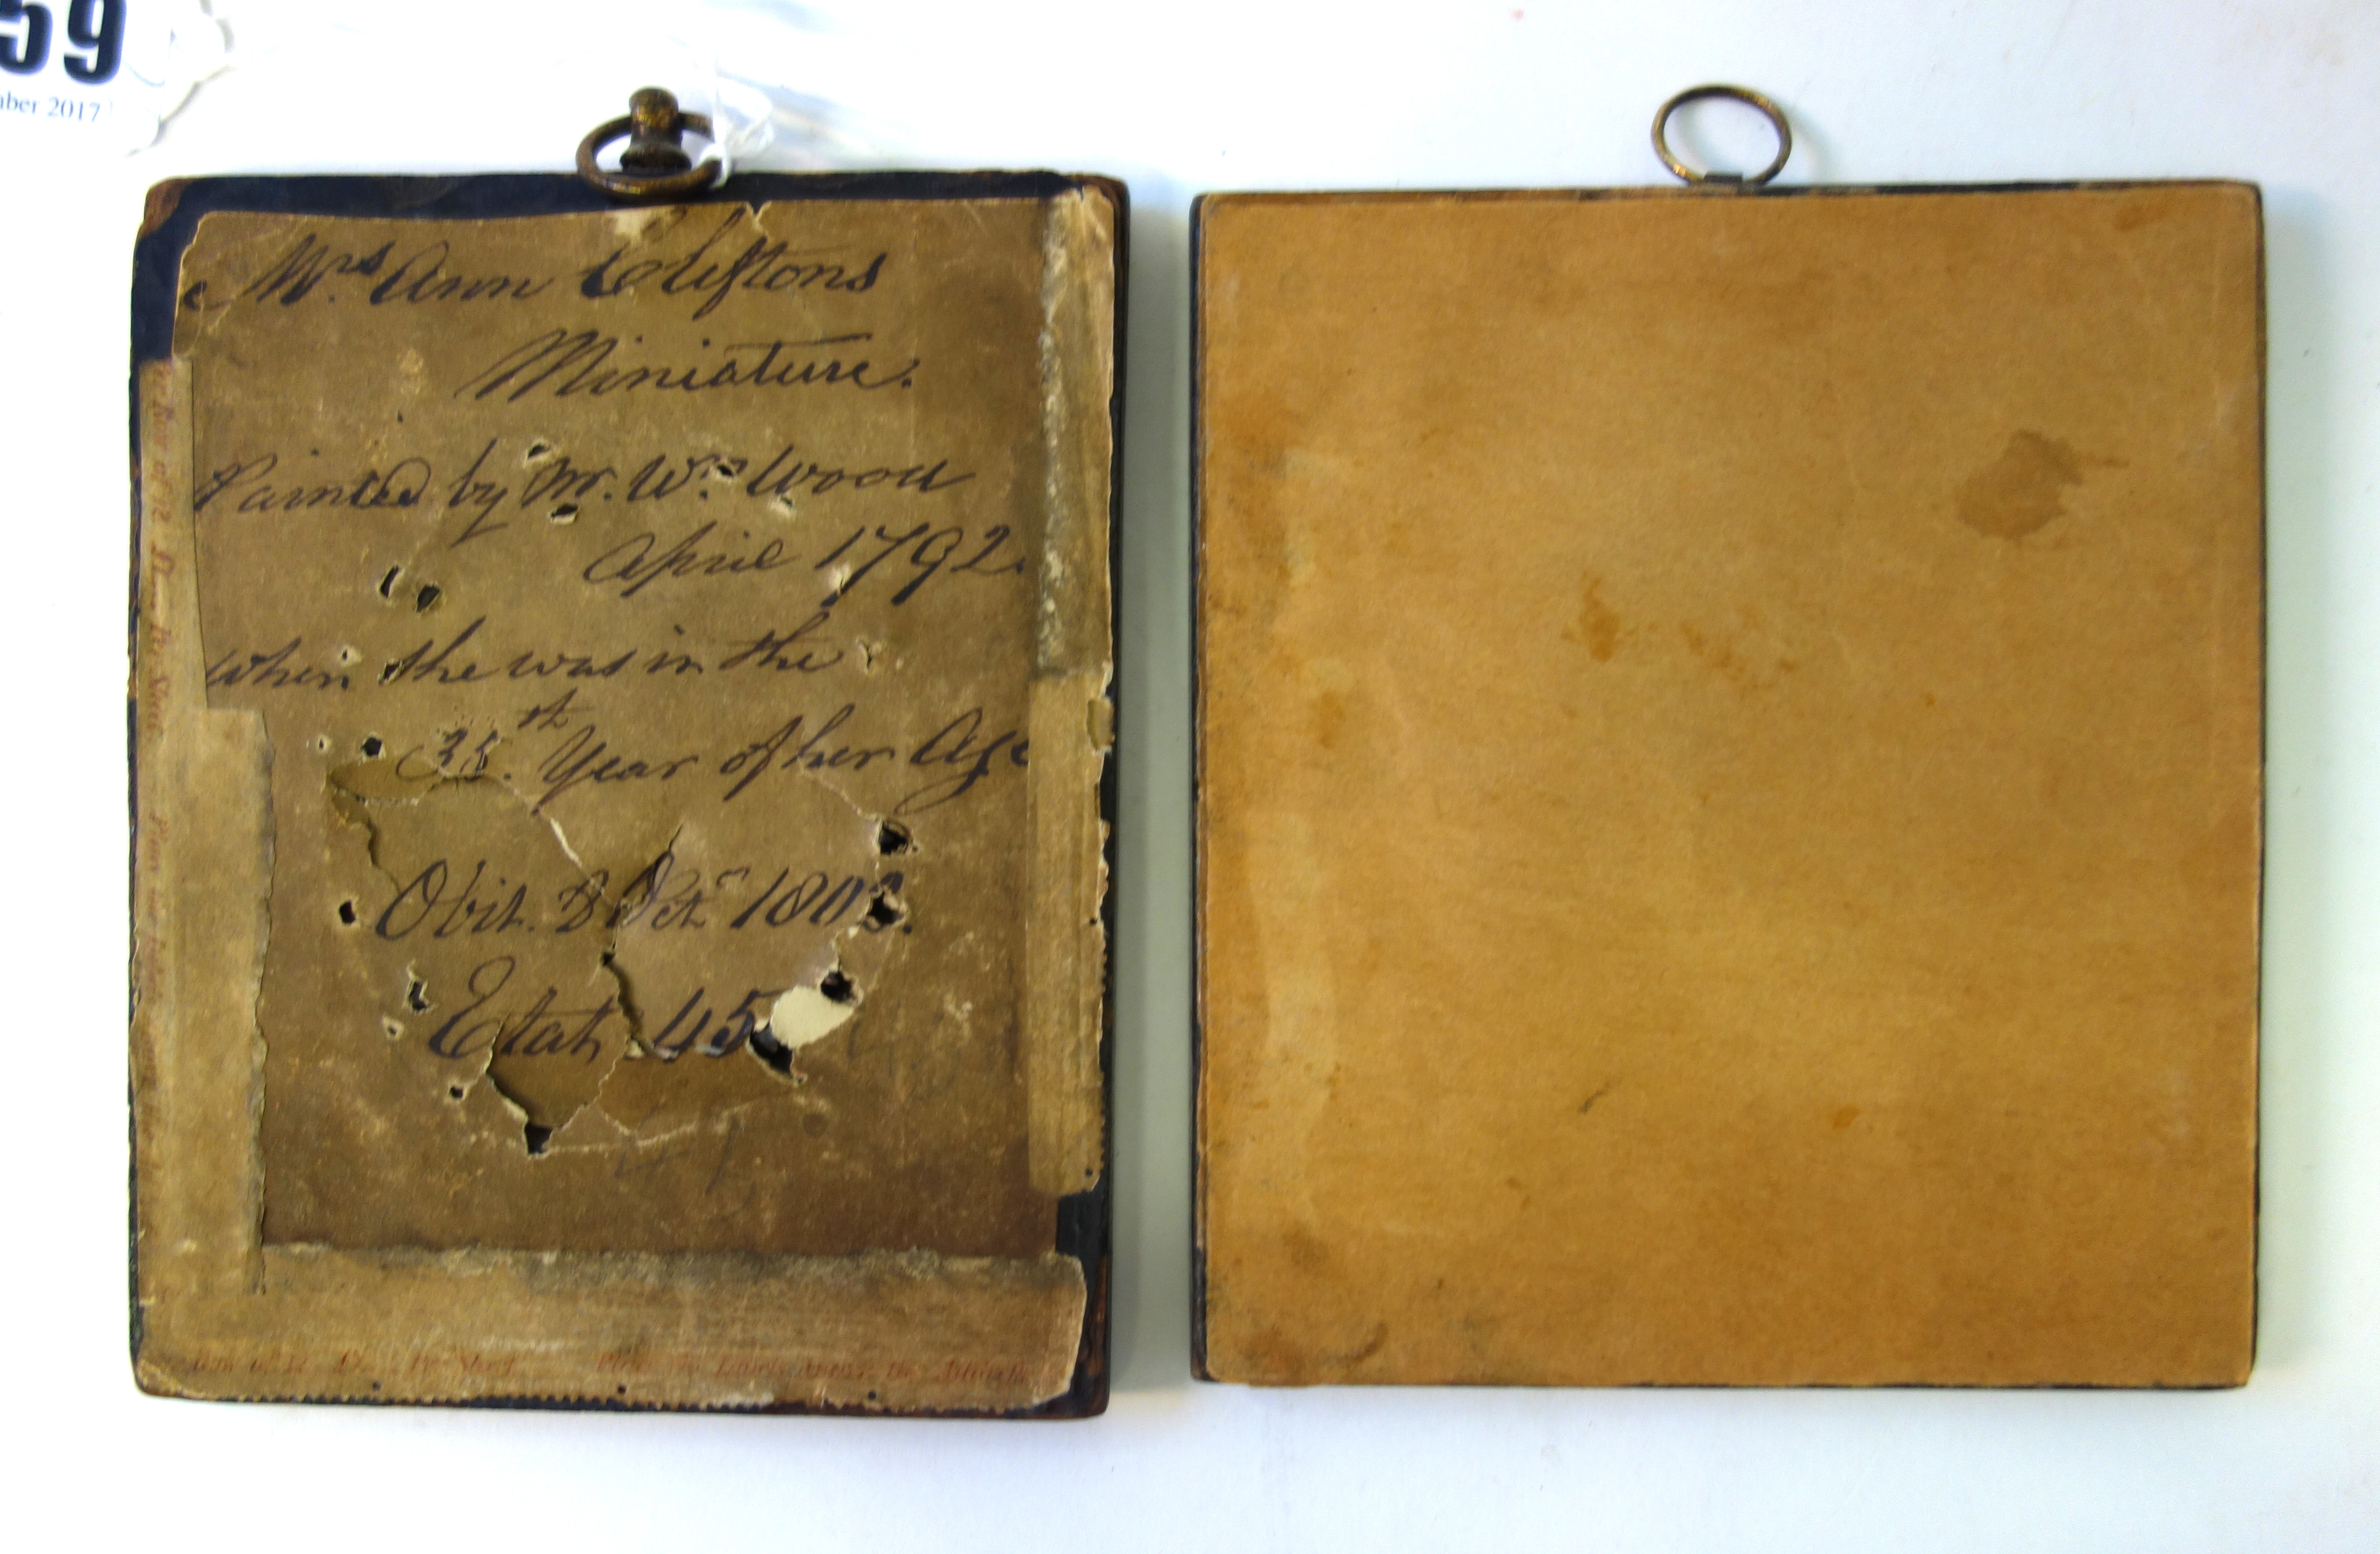 59
ber 2017
Mrs Ann Cliftons
Miniature.
Painted by Mr. Wm. Wood
April 1792.
when she was in the
35.th Year of her Age
Obit. 8 Octr 1802.
Etat. 45